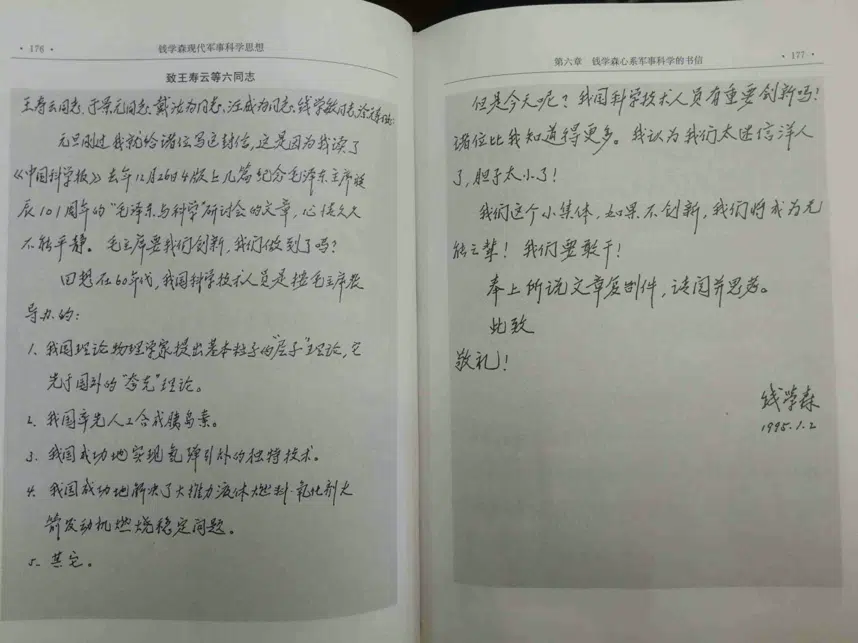 · 176 ·
钱学森现代军事科学思想
致王寿云等六同志
王寿云同志、于景元同志、戴汝为同志、汪成为同志、钱学敏同志、涂元季同志:
元旦刚过我就给诸位写这封信,这是因为我读了
《中国科学报》去年12月26日4版上几篇纪念毛泽东主席诞
辰101周年的“毛泽东与科学”研讨会的文章,心情久久
不能平静。毛主席要我们创新,我们做到了吗?
回想在60年代,我国科学技术人员是按毛主席教
导办的:
1. 我国理论物理学家提出基本粒子的“层子”理论,它
先于国外的“夸克”理论。
2. 我国率先人工合成胰岛素。
3. 我国成功地实现氢弹引爆的独特技术。
4. 我国成功地解决了大推力液体燃料·氧化剂火
箭发动机燃烧稳定问题。
5. 其它。
第六章 钱学森心系军事科学的书信
· 177 ·
但是今天呢?我国科学技术人员有重要创新吗?
诸位比我知道得更多。我认为我们太迷信洋人
了,胆子太小了!
我们这个小集体,如果不创新,我们将成为无
能之辈!我们要敢干!
奉上所说文章复制件,请阅并思考。
此致
敬礼!
钱学森
1995.1.2